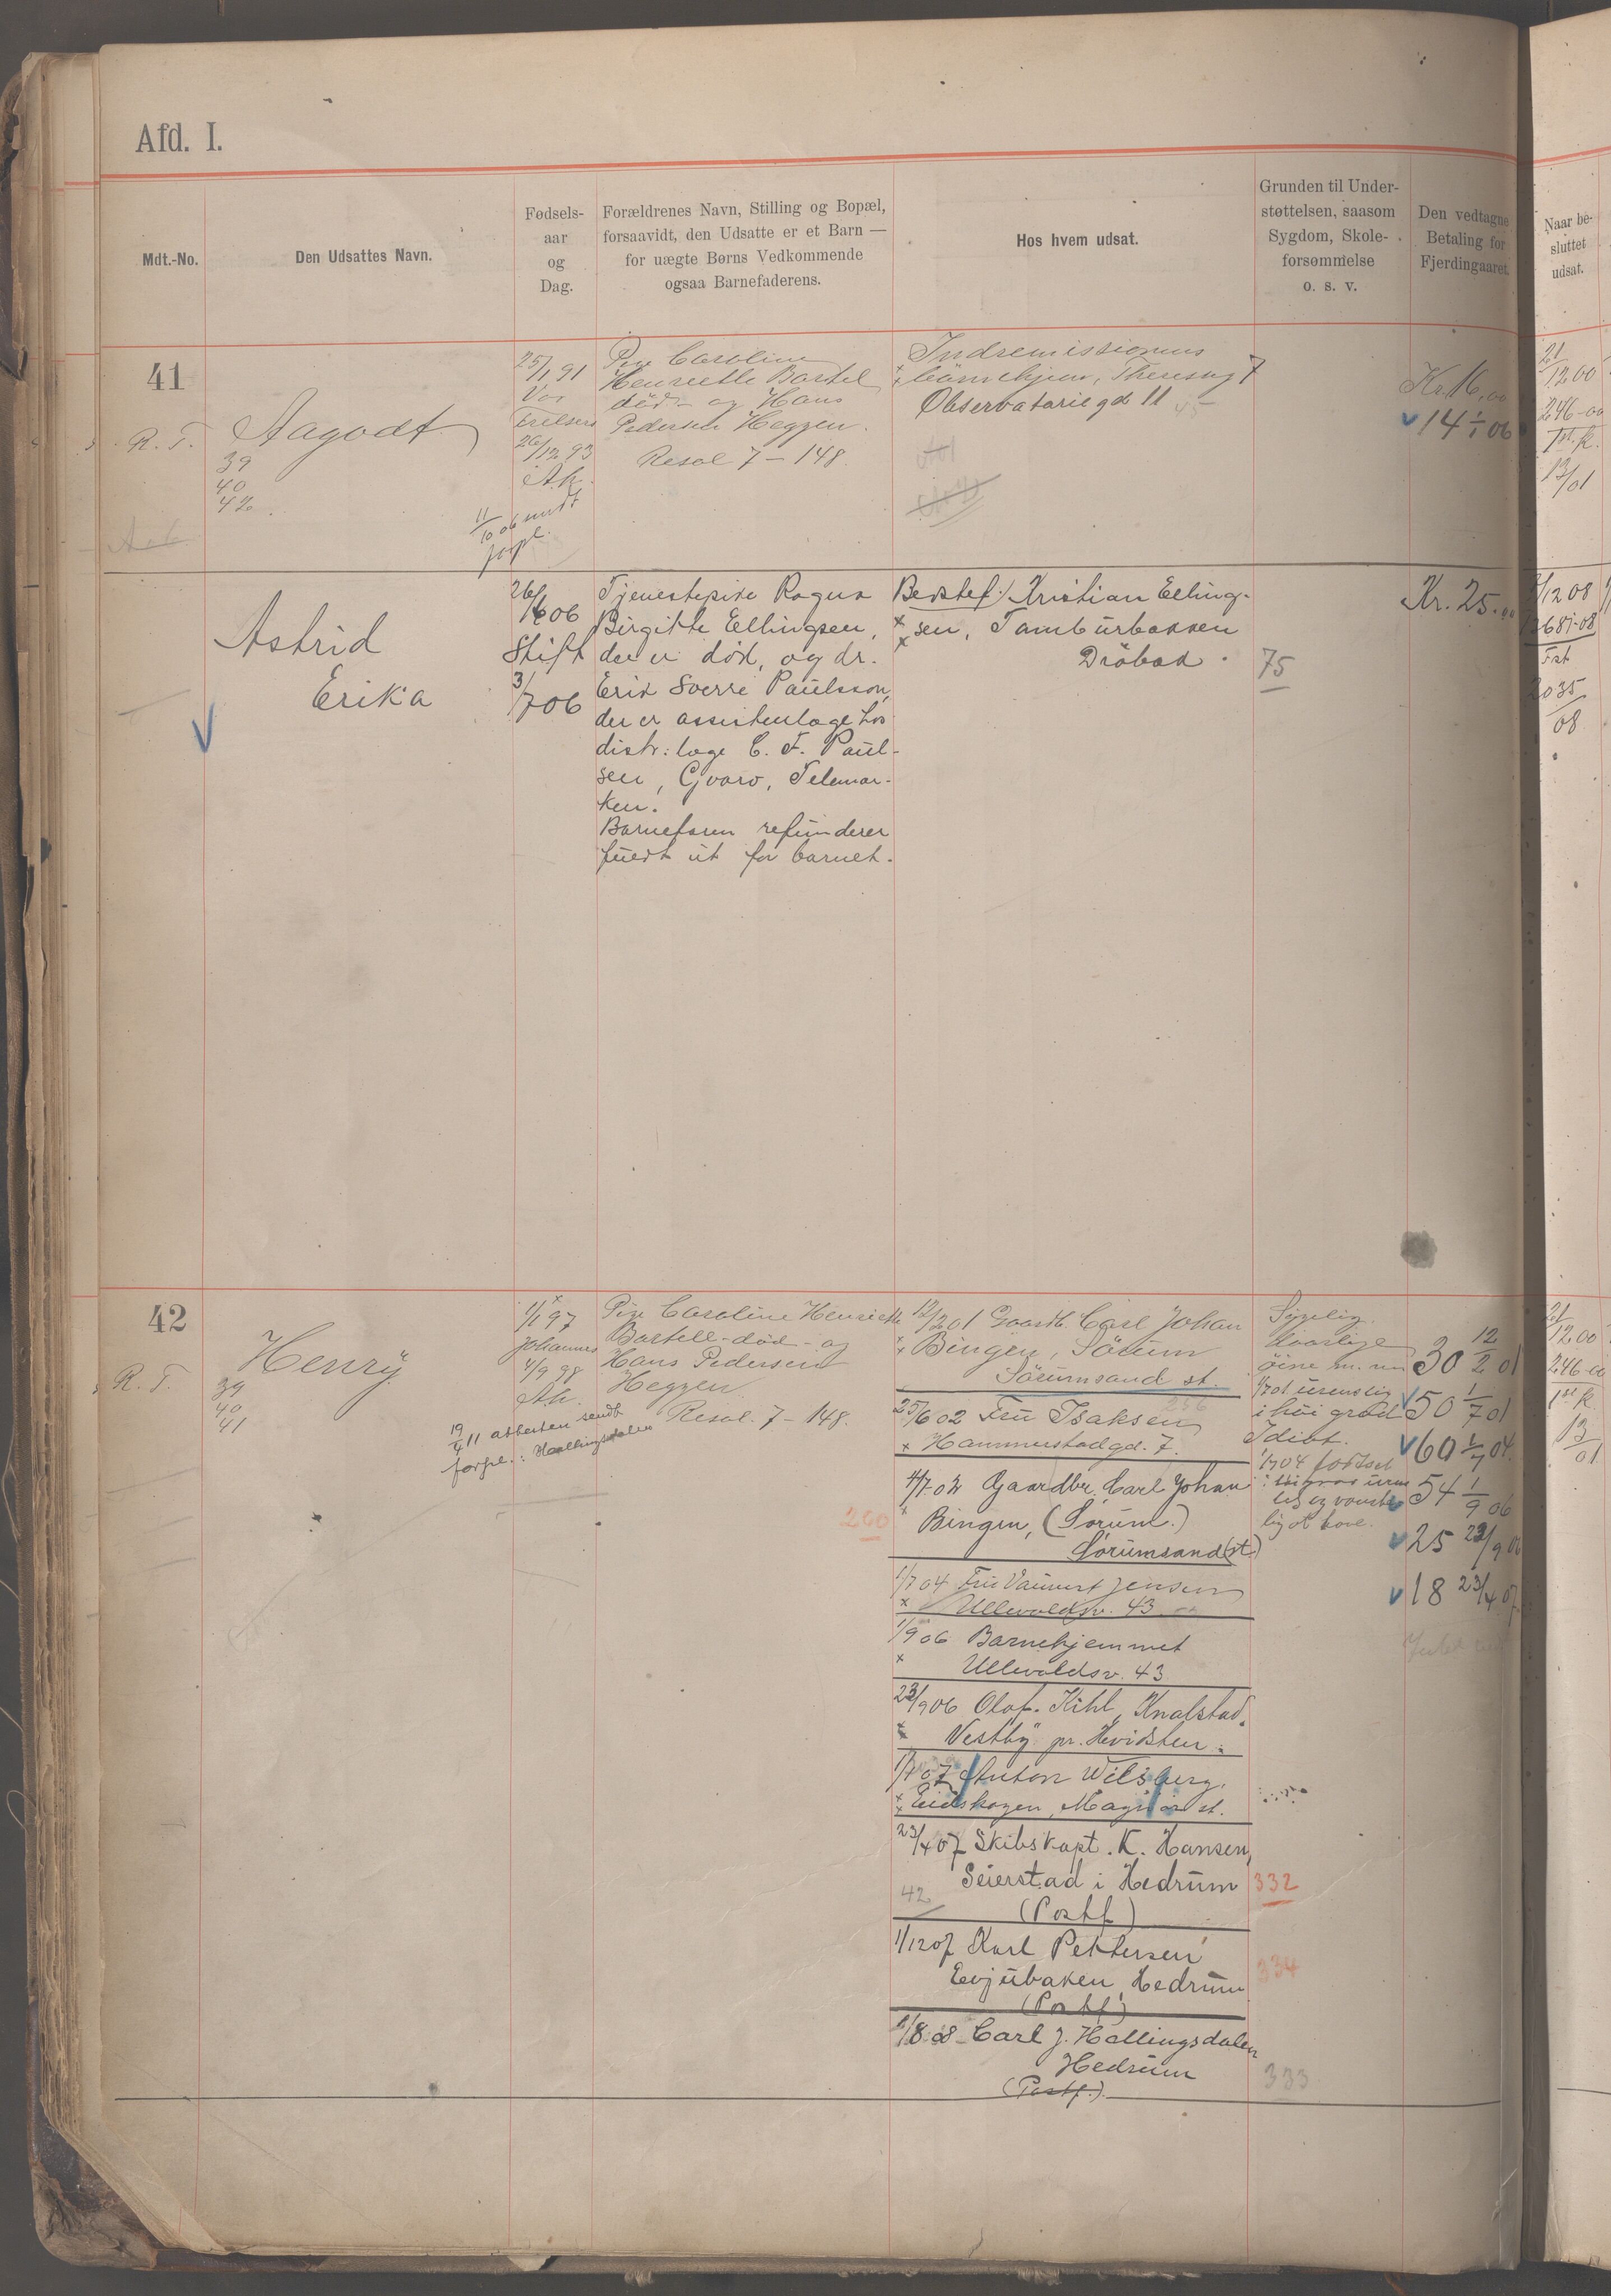 Afd. I.
Mdt.-No.
Den Udsattes Navn.
Fødsels-
aar
og
Dag.
Forældrenes Navn, Stilling og Bopæl,
forsaavidt, den Udsatte er et Barn —
for uægte Børns Vedkommende
ogsaa Barnefaderens.
Hos hvem udsat.
Grunden til Under-
støttelsen, saasom
Sygdom, Skole-
forsømmelse
o. s. v.
Den vedtagne
Betaling for
Fjerdingaaret.
Naar be-
sluttet
udsat.
41
R. T.
Aagodt
39
40
42
25/1 91
Vor
Frelsers
26/12 93
Ak.
11/10 06 nyt
forpl.
Pige Caroline
Henriette Bartel
død - og Hans
Pedersen Heggen.
Resol 7 - 148.
Indremissionens
barnehjem, Theresesg 7
Observatorie gd 11
Kr. 16,00
14 1/1 06
21
12 00
246-00
1st k.
13/01
Astrid
Erika
26/1 06
Stift
3/7 06
Tjenestepike Ragna
Birgitte Ellingsen,
der er død, og dr.
Erik Sverre Paulsson,
der er assistentlæge hos
distr: læge C. F. Paul-
sen, Gvarv, Telemar-
ken.
Barnefaren refunderer
fuldt ut for barnet.
Bedstef. Kristian Elling-
sen, Tamburbakken
Drøbak.
75
Kr. 25.00
/12 08
2035
08
42
R. T.
Henry
39
40
41
1/1 97
Johannes
4/9 98
Ak.
19/4 11 attesten sendt
forpl.: Hallingsdalen
Pige Caroline Henriette
Bartell - død - og
Hans Pedersen
Heggen
Resol. 7 - 148.
12/2 01 Gaardb. Carl Johan
Bingen, Sörum
Sörumsand st.
256
25/6 02 Fru Isaksen
Hammerstadgd. 7.
4/7 02 Gaardbr. Carl Johan
200
Bingen, (Sörum.)
Sörumsand (st.)
1/7 04 Fru Jensen
Ullevoldsv. 43
1/9 06 Barnehjemmet
Ullevoldsv. 43
23/9 06 Olaf Kihl, Knalstad,
Vestby pr. Hvidsten.
1/1 07 Anton Wilsberg,
Eidskogen, Magnor st.
23/4 07 Skibskapt. K. Hansen,
Seierstad i Hedrum
332
42
(Postf.)
1/12 07 Karl Pettersen
Evjubaken, Hedrum
334
(Postf.)
1/8 08 Carl J. Hallingsdalen
Hedrum
333
(Postf.)
Sygelig
daarlige
øine
1/7 01 urenslig
i høi grad
Idiot.
1/7 04 fortsat
30 12/2 01
50 1/7 01
60 1/7 04
54 1/9 06
25 23/9 06
18 23/4 07
21
12.00
246-00
1st k.
13
01